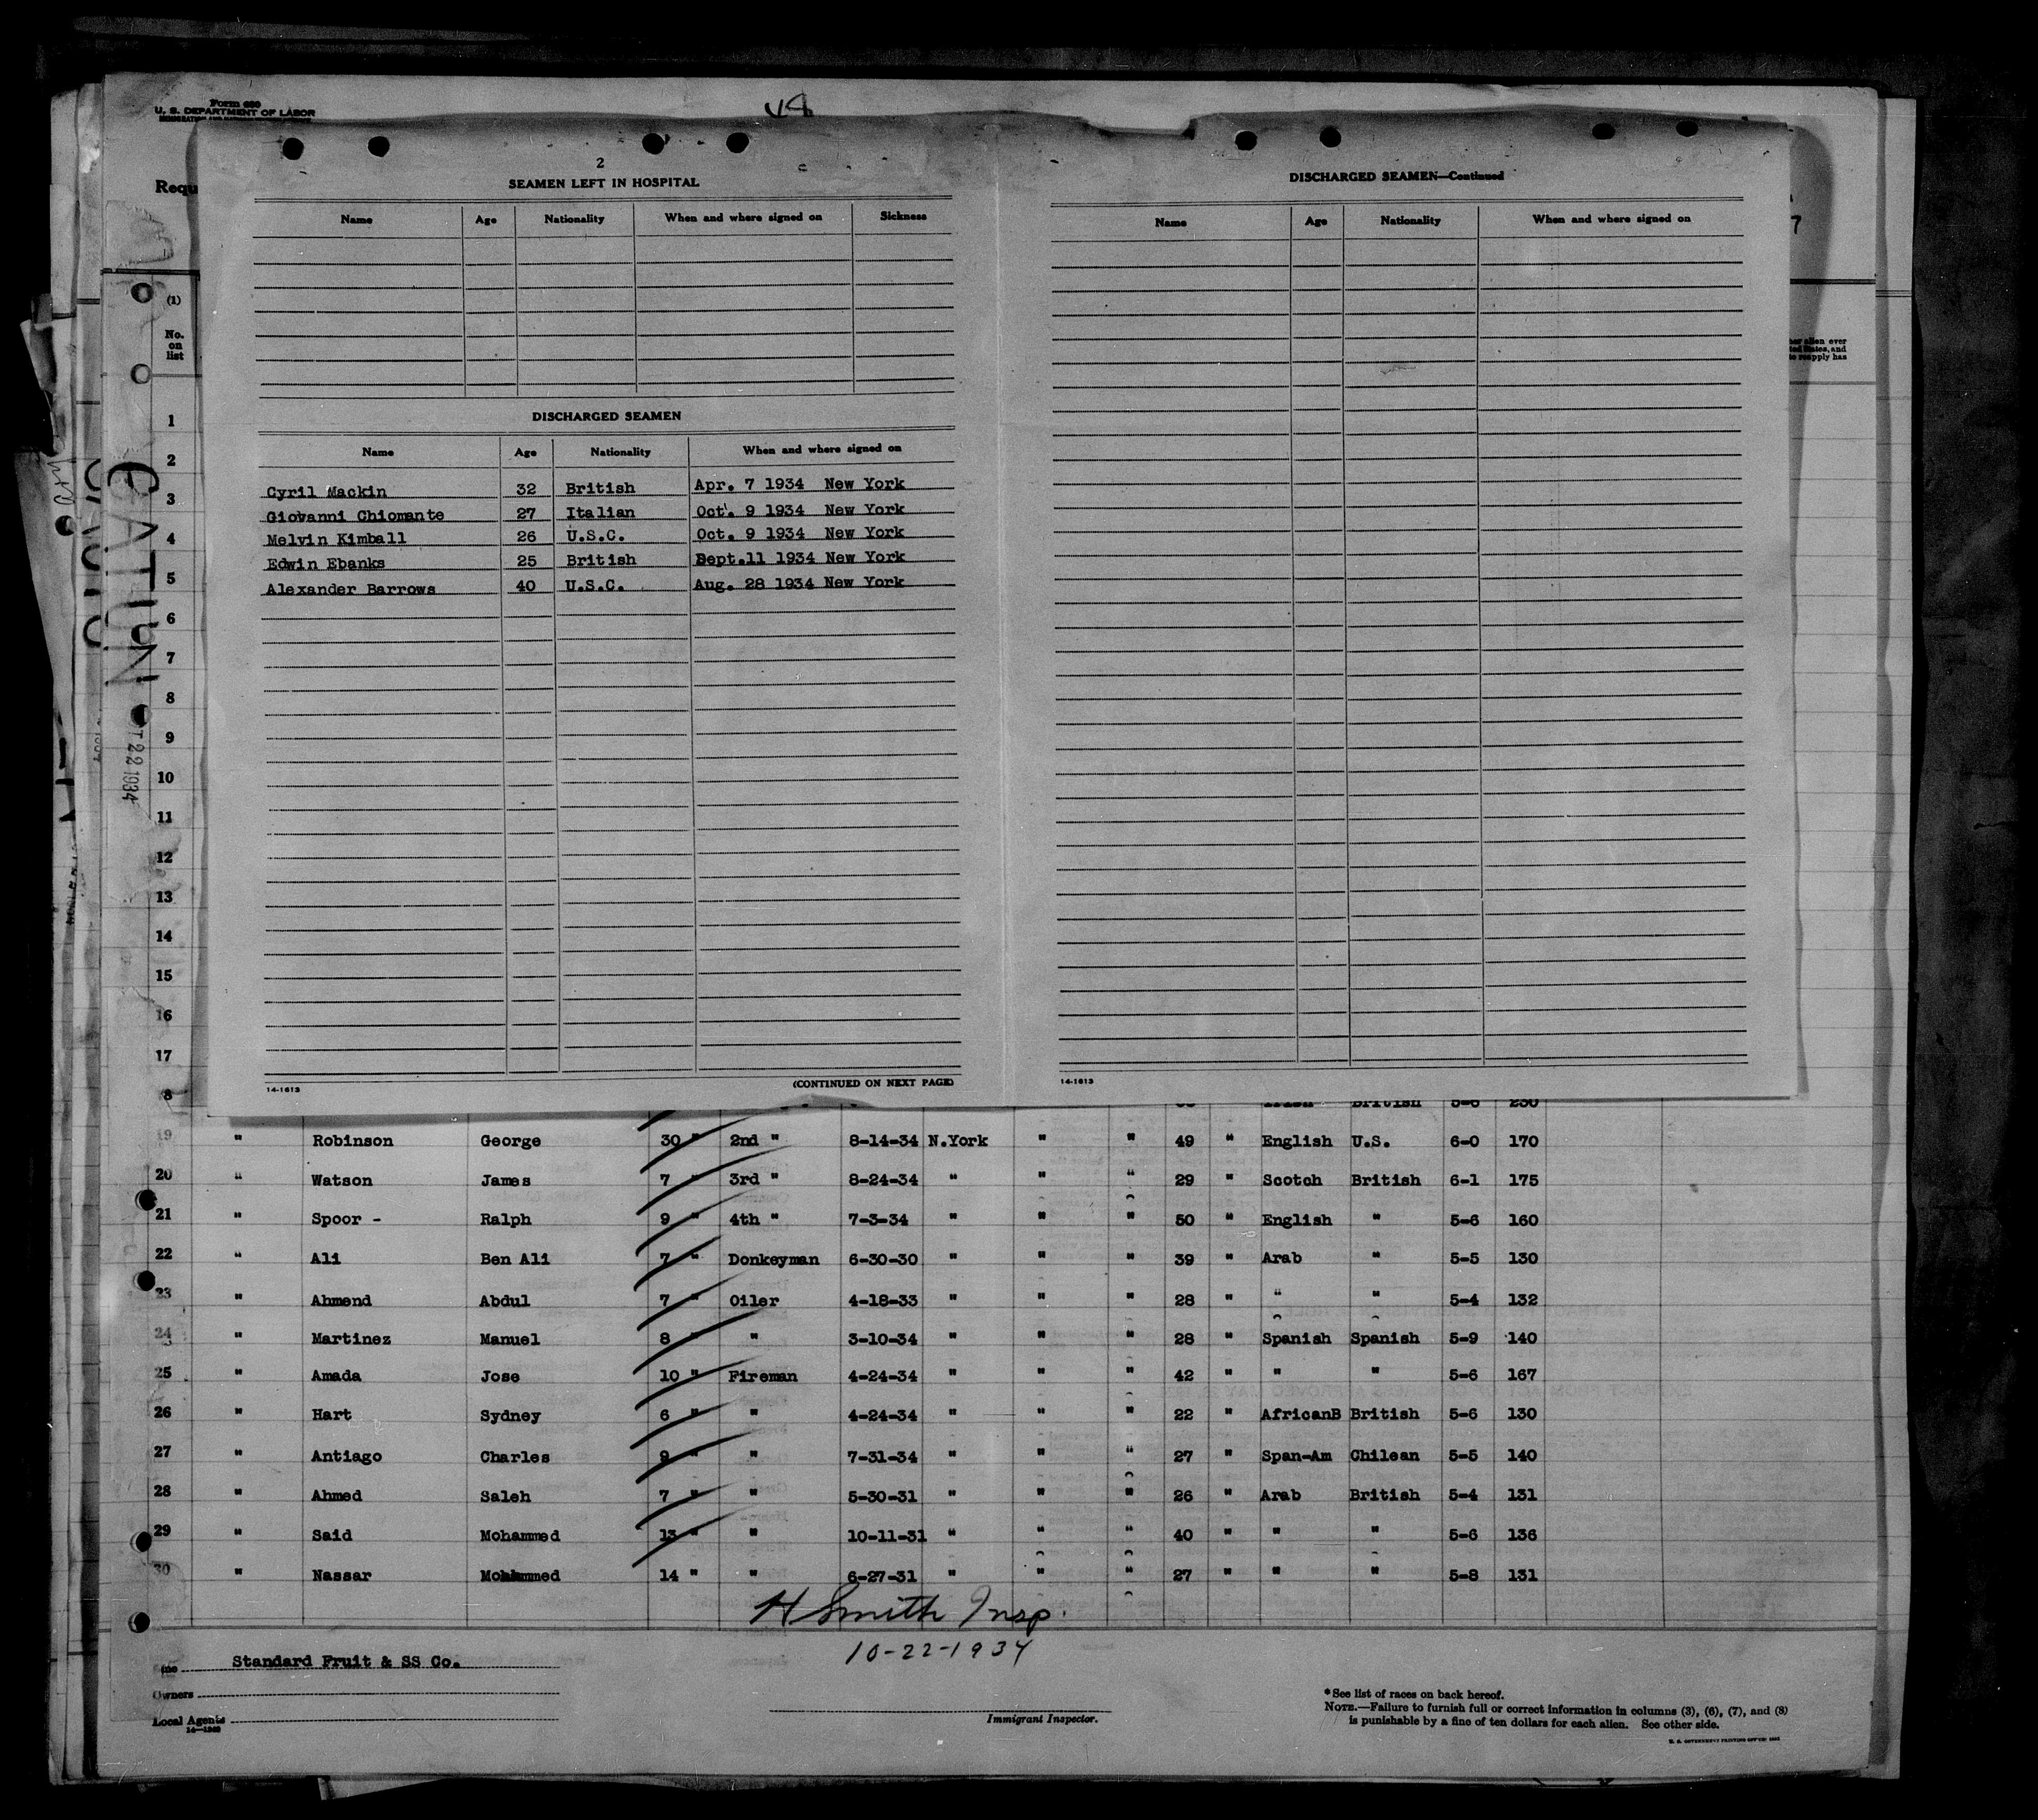 Form 680
U. S. DEPARTMENT OF LABOR
Requ
(1)
No.
on
list
2
SEAMEN LEFT IN HOSPITAL
Name Age Nationality When and where signed on Sickness
DISCHARGED SEAMEN
Name Age Nationality When and where signed on
Cyril Mackin 32 British Apr. 7 1934 New York
Giovanni Chiomante 27 Italian Oct. 9 1934 New York
Melvin Kimball 26 U.S.C. Oct. 9 1934 New York
Edwin Ebanks 25 British Sept.11 1934 New York
Alexander Barrows 40 U.S.C. Aug. 28 1934 New York
14-1613 (CONTINUED ON NEXT PAGE)
DISCHARGED SEAMEN—Continued
Name Age Nationality When and where signed on
14-1613
7
alien ever
States, and
to reapply has
1
2
3
4
5
6
7
8
9
10
11
12
13
14
15
16
17
8 British 5-6 230
19 " Robinson George 30 " 2nd " 8-14-34 N.York " " 49 " English U.S. 6-0 170
20 " Watson James 7 " 3rd " 8-24-34 " " " 29 " Scotch British 6-1 175
21 " Spoor - Ralph 9 " 4th " 7-3-34 " " " 50 " English " 5-6 160
22 " Ali Ben Ali 7 " Donkeyman 6-30-30 " " " 39 " Arab " 5-5 130
23 " Ahmend Abdul 7 " Oiler 4-18-33 " " " 28 " " " 5-4 132
24 " Martinez Manuel 8 " " 3-10-34 " " " 28 " Spanish Spanish 5-9 140
25 " Amada Jose 10 " Fireman 4-24-34 " " " 42 " " " 5-6 167
26 " Hart Sydney 6 " " 4-24-34 " " " 22 " AfricanB British 5-6 130
27 " Antiago Charles 9 " " 7-31-34 " " " 27 " Span-Am Chilean 5-5 140
28 " Ahmed Saleh 7 " " 5-30-31 " " " 26 " Arab British 5-4 131
29 " Said Mohammed 13 " " 10-11-31 " " " 40 " " " 5-6 136
30 " Nassar Mohammed 14 " " 6-27-31 " " " 27 " " " 5-8 131
H Smith Insp.
10-22-1934
Standard Fruit & SS Co.
Owners
Local Agents
Immigrant Inspector.
* See list of races on back hereof.
NOTE.—Failure to furnish full or correct information in columns (3), (6), (7), and (8)
is punishable by a fine of ten dollars for each alien. See other side.
T 22 1934